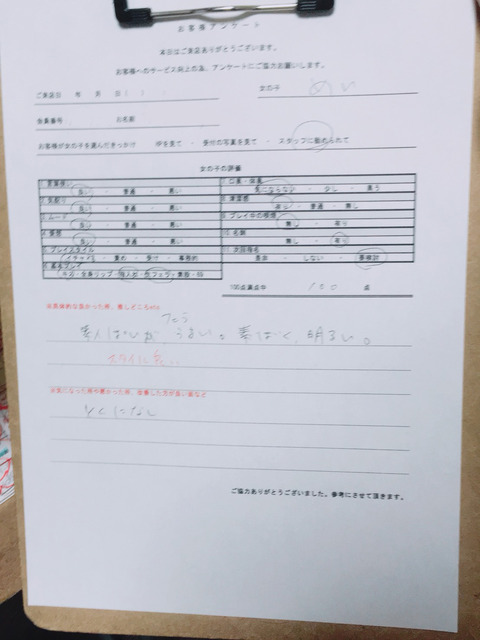 お客様アンケート
本日はご来店ありがとうございます。
お客様へのサービス向上の為、アンケートにご協力お願いします。
ご来店日 年 月 日( )
女の子 めい
会員番号: お名前
お客様が女の子を選んだきっかけ HPを見て ・ 受付の写真を見て ・ スタッフに勧められて
女の子の評価
1.言葉使い
良い ・ 普通 ・ 悪い
2.気配り
良い ・ 普通 ・ 悪い
3.ムード
良い ・ 普通 ・ 悪い
4.愛想
良い ・ 普通 ・ 悪い
5.プレイスタイル
イチャイチャ ・ 責め ・ 受け ・ 事務的
6.基本プレイ
キス・全身リップ・指入れ・生フェラ・素股・69
7.口臭・体臭
気にならない ・ 少し ・ 臭う
8.清潔感
有り ・ 普通 ・ 無し
9.プレイ中の積極
無し ・ 有り
10.名刺
無し ・ 有り
11.次回指名
是非 ・ しない ・ 要検討
100点満点中 100 点
※具体的な良かった所、推しどころetc
素人ぽいが うまい。素ぼく、明るい。
スタイル良い。
※気になった所や悪かった所、改善した方が良い面など
とくになし
ご協力ありがとうございました。参考にさせて頂きます。